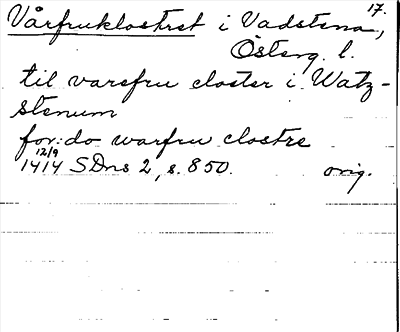 17.
Vårfruklostret i Vadstena,
Österg. l.
til varafru closter i Watz-
stenum
for: do warfru clostre
12/9
1414 SDns 2, s. 850. orig.